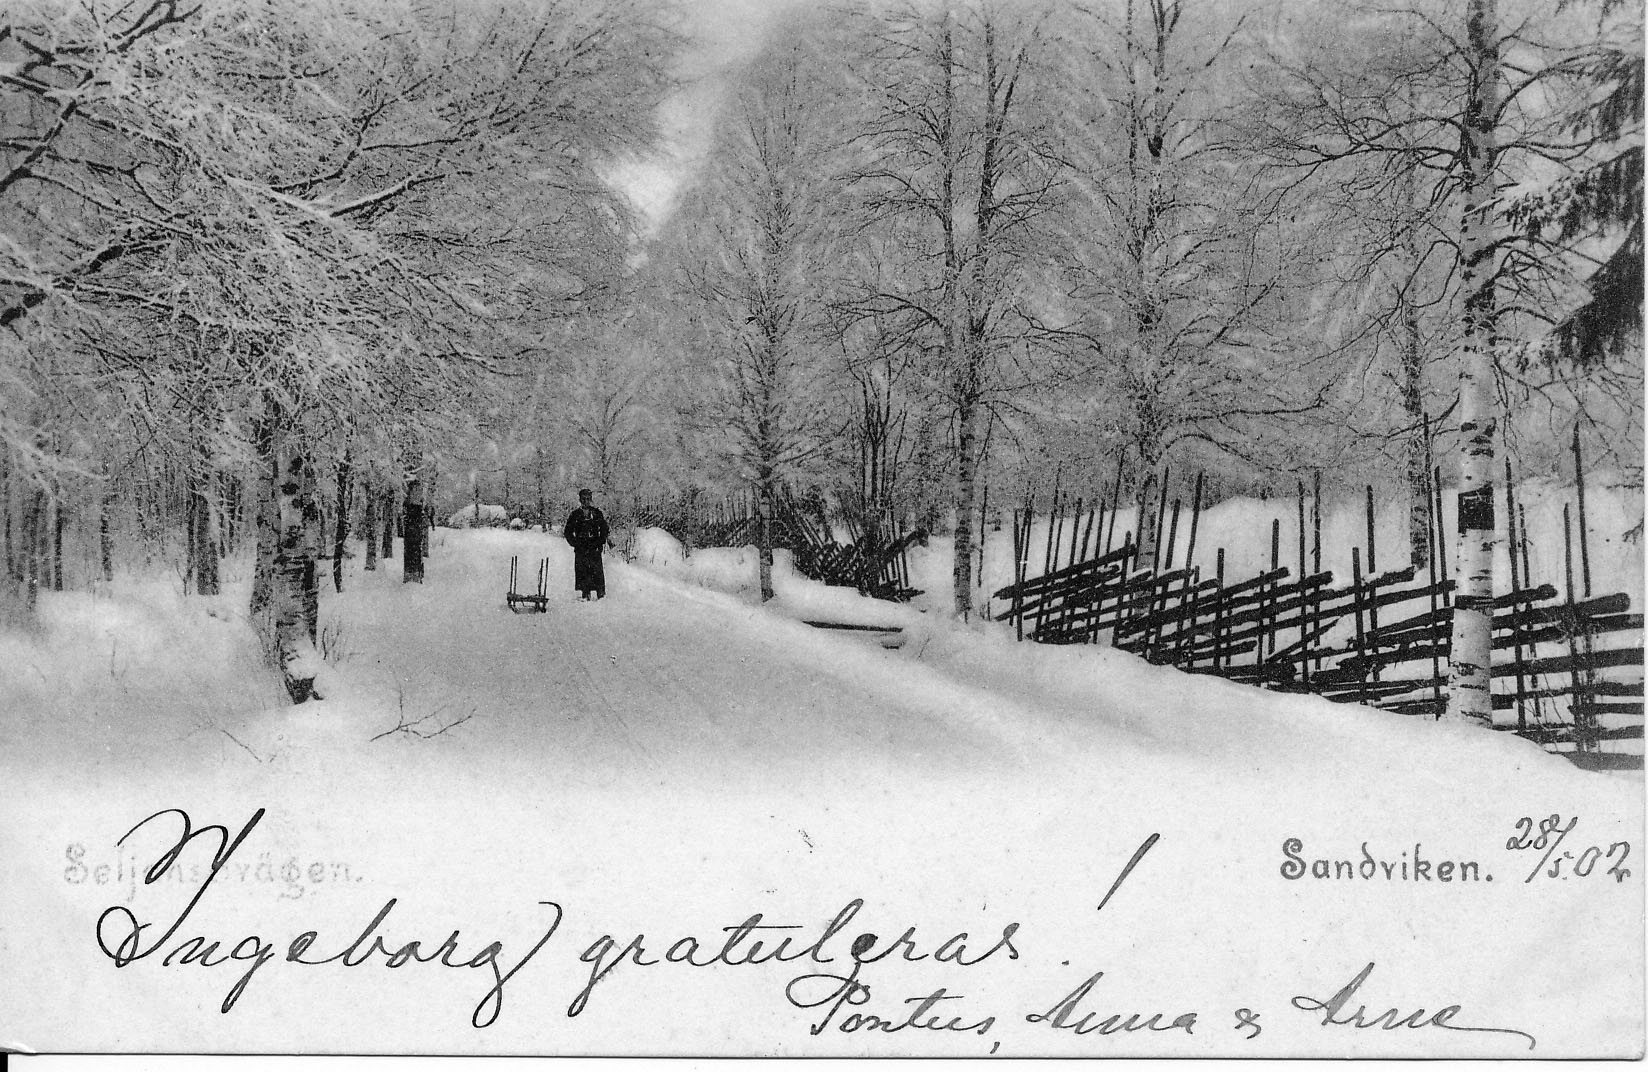 Sandviken. 28/5.02
Ingeborg gratuleras!
Pontus, Anna & Arne